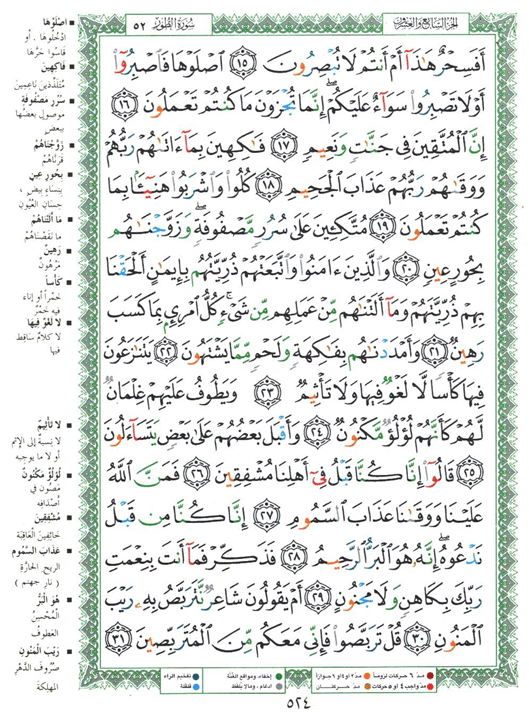 الجزء السابع والعشرون
سورة الطور ٥٢
أَفَسِحْرٌ هَٰذَا أَمْ أَنتُمْ لَا تُبْصِرُونَ ١٥ اصْلَوْهَا فَاصْبِرُوا
أَوْ لَا تَصْبِرُوا سَوَاءٌ عَلَيْكُمْ إِنَّمَا تُجْزَوْنَ مَا كُنتُمْ تَعْمَلُونَ ١٦
إِنَّ الْمُتَّقِينَ فِي جَنَّاتٍ وَنَعِيمٍ ١٧ فَاكِهِينَ بِمَا آتَاهُمْ رَبُّهُمْ
وَوَقَاهُمْ رَبُّهُمْ عَذَابَ الْجَحِيمِ ١٨ كُلُوا وَاشْرَبُوا هَنِيئًا بِمَا
كُنتُمْ تَعْمَلُونَ ١٩ مُتَّكِئِينَ عَلَىٰ سُرُرٍ مَّصْفُوفَةٍ ۖ وَزَوَّجْنَاهُم
بِحُورٍ عِينٍ ٢٠ وَالَّذِينَ آمَنُوا وَاتَّبَعَتْهُمْ ذُرِّيَّتُهُم بِإِيمَانٍ أَلْحَقْنَا
بِهِمْ ذُرِّيَّتَهُمْ وَمَا أَلَتْنَاهُم مِّنْ عَمَلِهِم مِّن شَيْءٍ ۚ كُلُّ امْرِئٍ بِمَا كَسَبَ
رَهِينٌ ٢١ وَأَمْدَدْنَاهُم بِفَاكِهَةٍ وَلَحْمٍ مِّمَّا يَشْتَهُونَ ٢٢ يَتَنَازَعُونَ
فِيهَا كَأْسًا لَّا لَغْوٌ فِيهَا وَلَا تَأْثِيمٌ ٢٣ وَيَطُوفُ عَلَيْهِمْ غِلْمَانٌ
لَّهُمْ كَأَنَّهُمْ لُؤْلُؤٌ مَّكْنُونٌ ٢٤ وَأَقْبَلَ بَعْضُهُمْ عَلَىٰ بَعْضٍ يَتَسَاءَلُونَ
٢٥ قَالُوا إِنَّا كُنَّا قَبْلُ فِي أَهْلِنَا مُشْفِقِينَ ٢٦ فَمَنَّ اللَّهُ
عَلَيْنَا وَوَقَانَا عَذَابَ السَّمُومِ ٢٧ إِنَّا كُنَّا مِن قَبْلُ
نَدْعُوهُ ۖ إِنَّهُ هُوَ الْبَرُّ الرَّحِيمُ ٢٨ فَذَكِّرْ فَمَا أَنتَ بِنِعْمَتِ
رَبِّكَ بِكَاهِنٍ وَلَا مَجْنُونٍ ٢٩ أَمْ يَقُولُونَ شَاعِرٌ نَّتَرَبَّصُ بِهِ رَيْبَ
الْمَنُونِ ٣٠ قُلْ تَرَبَّصُوا فَإِنِّي مَعَكُم مِّنَ الْمُتَرَبِّصِينَ ٣١
■ اصْلَوْهَا
ادْخُلُوهَا . أو
قَاسُوا حَرَّهَا
■ فَاكِهِينَ
مُتَلَذِّذِينَ نَاعِمِينَ
■ سُرُرٍ مَصْفُوفَةٍ
موصول بعضُها
ببعض
■ زَوَّجْنَاهُمْ
قَرَنَّاهُمْ
■ بِحُورٍ عِينٍ
بِنِسَاءٍ بِيضٍ ،
حِسَانِ العُيُونِ
■ مَا أَلَتْنَاهُمْ
مَا نَقَصْنَاهُمْ
■ رَهِينٌ
مَرْهُونٌ
■ كَأْسًا
خَمْرًا أو إناء
فيه خَمْرٌ
■ لَا لَغْوٌ فِيهَا
لا كلامٌ سَاقِط
فيها
■ لَا تَأْثِيمٌ
لا نِسبةٌ إلى الإثم
أو لا ما يوجبه
■ لُؤْلُؤٌ مَكْنُونٌ
مَصُون في
أَصْدَافِهِ
■ مُشْفِقِينَ
خَائِفِينَ العَاقِبَة
■ عَذَابَ السَّمُومِ
الريح الحارَّة
( نار جهنم )
■ هُوَ الْبَرُّ
الْمُحْسِنُ
العَطُوفُ
■ رَيْبَ الْمَنُونِ
صُرُوفَ الدَّهْرِ
المهلِكَة
مدّ ٦ حركات لزوماً مدّ ٢ أو ٤ أو ٦ جوازاً
مدّ واجب ٤ أو ٥ حركات مدّ حركتان
إخفاء، ومواقع الغُنَّة تفخيم الراء
ادغام ، وما لا يُلفَظ قلقلة
٥٢٤